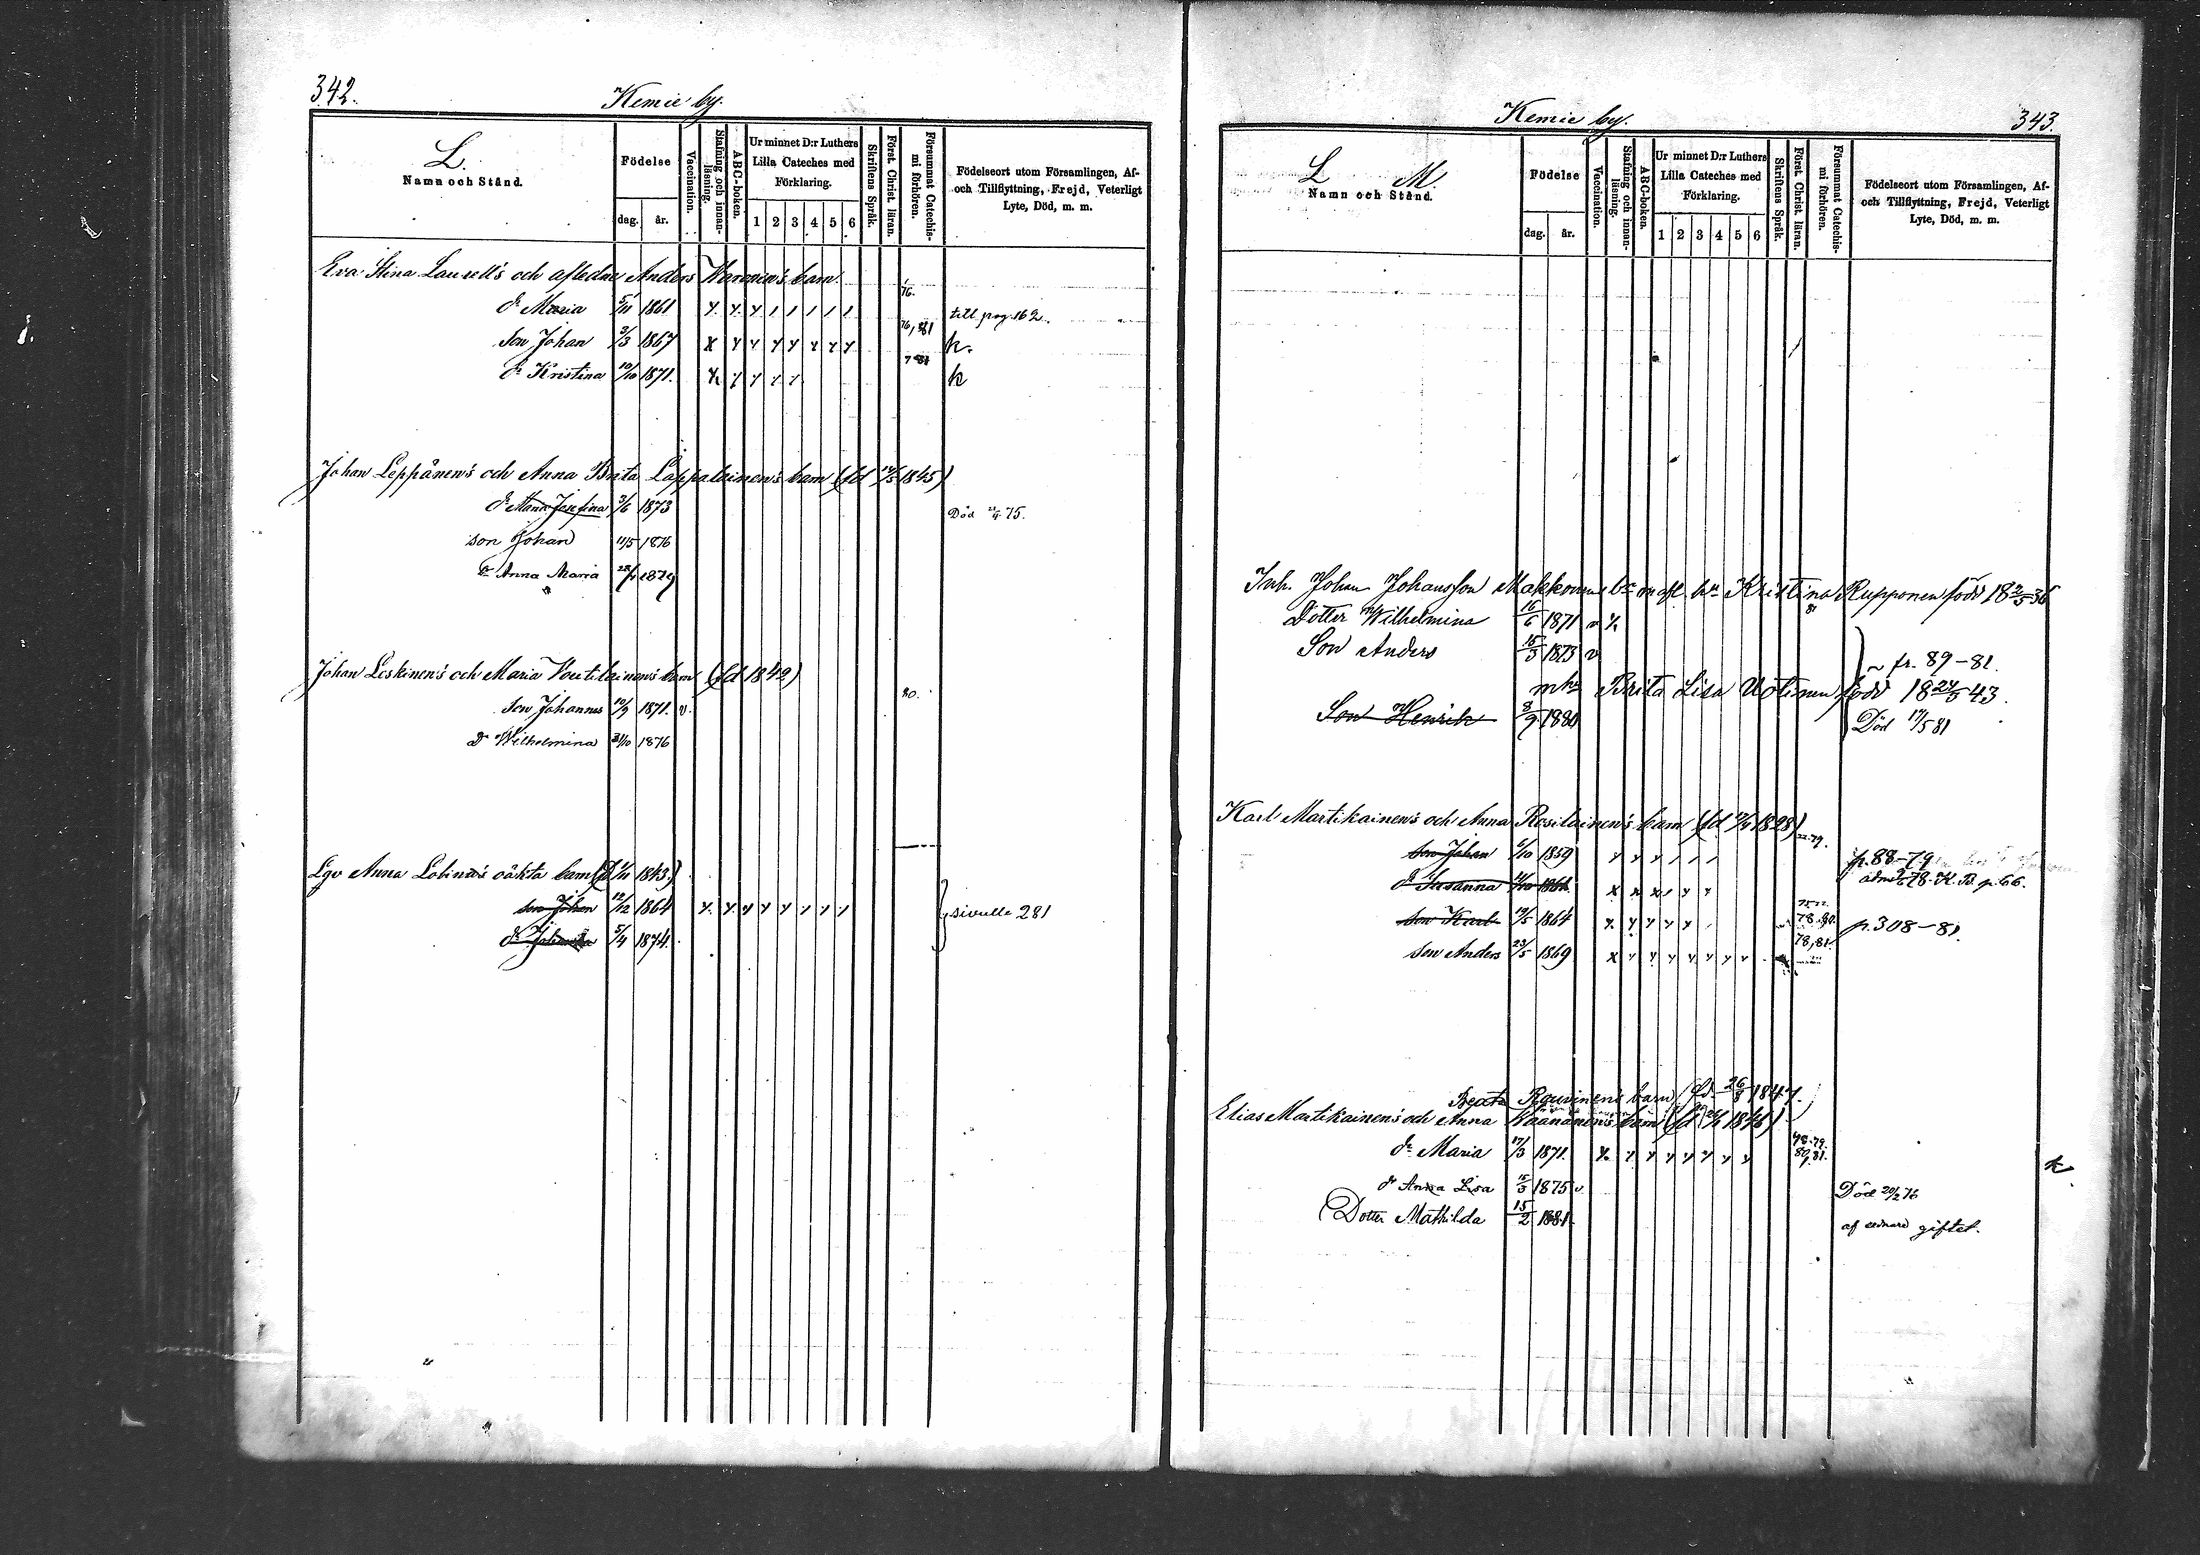 342.
Kemie by.
L.
Namn och Stånd.
Födelse
dag. år.
Vaccination.
Stafning och innanläsning.
ABC-boken.
Ur minnet D:r Luthers Lilla Cateches med Förklaring.
1 2 3 4 5 6
Skriftens Språk.
Förest. Christ. läran.
Försummat Catechismi förhören.
Födelseort utom Församlingen, Af- och Tillflyttning, Frejd, Veterligt Lyte, Död, m. m.
Eva Stina Laurell's och afledne Anders barn. 76.
dr Maria 5/11 1861 till pag. 162.
son Johan 3/3 1867 76, 81 k.
dr Kristina 10/10 1871. k
Johan Leppänen's och Anna Brita Lappalainen's barn (fd 12/5 1845)
dr Maria Josefina 3/6 1873 Död 75.
son Johan 11/5 1876
dr Anna Maria 1879
Johan Leskinen's och Maria Voutilainen's barn (fd 1842)
son Johannes 10/9 1871. v. 80.
dr Wilhelmina 31/10 1876
Lgv Anna oäkta barn 1843.)
son Johan 12/12 1864 sivulle 281
dr 5/4 1874.
Kemie by.
343.
L M.
Namn och Stånd.
Födelse
dag. år.
Vaccination.
Stafning och innanläsning.
ABC-boken.
Ur minnet D:r Luthers Lilla Cateches med Förklaring.
1 2 3 4 5 6
Skriftens Språk.
Förest. Christ. läran.
Försummat Catechismi förhören.
Födelseort utom Församlingen, Af- och Tillflyttning, Frejd, Veterligt Lyte, Död, m. m.
Inh. Johan Johansson Makkonens Kristina Rupponen född 18 2/5 36
Dotter Wilhelmina 16/6 1871 v 81
Son Anders 15/3 1873 v fr. 89-81.
Brita Lisa Uotinen född 18 24/5 43.
Son Henrik 8/9 1880 Död 17/5 81
Karl Martikainen's och Anna Rosilainen's barn (fd 1828)
son Johan 1859 79. p. 88-79
dr Susanna 78. K. B. p. 66.
son Karl 19/5 1864 78.80. p. 308-81.
son Anders 23/5 1869 78, 81.
Beata Rouvinen's barn fd. 26/8 1847.
Elias Martikainen's och Anna Väänänen's barn (fd 1846)
dr Maria 17/3 1871. 78.79. 80,81. k
dr Anna Lisa 15/3 1875 v. Död 20/2 76
Dotter Mathilda 15/2 1881. giftet.